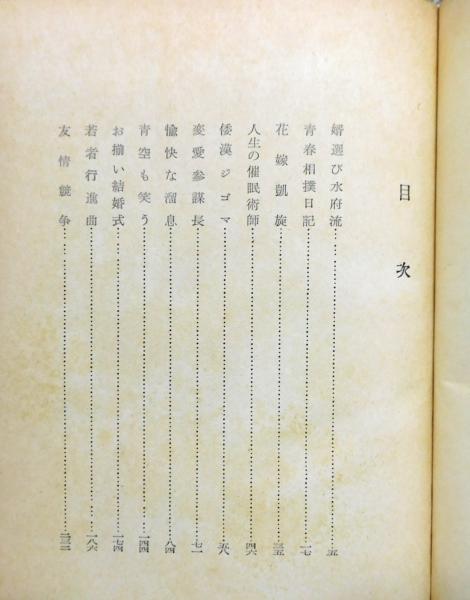 目次
婿選び水府流……五
青春相撲日記……一七
花嫁凱旋……三五
人生の催眠術師……四六
倭漢ジゴマ……五八
戀愛参謀長……七一
愉快な溜息……八四
青空も笑う……一四四
お揃い結婚式……一七四
若者行進曲……一八六
友情競争……